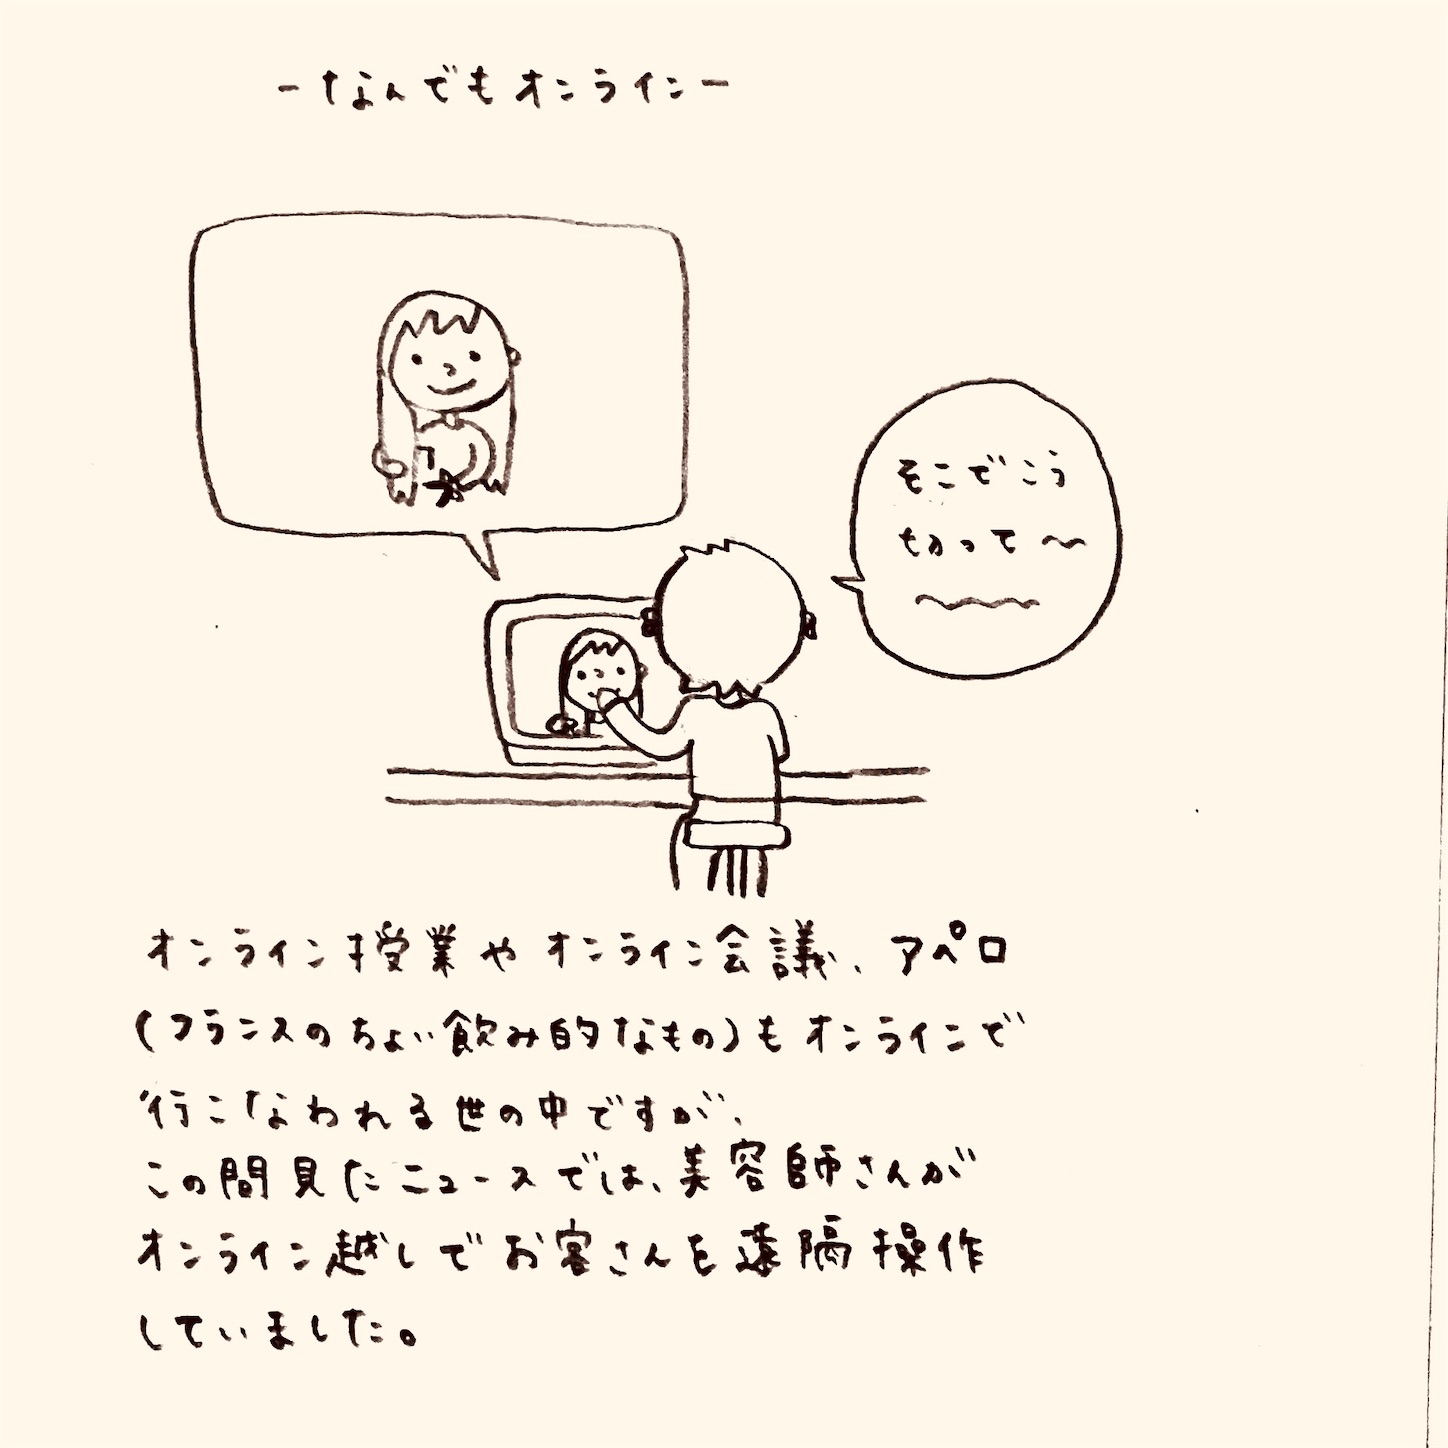 －なんでもオンライン－
そこでこう
切って〜
オンライン授業やオンライン会議、アペロ
(フランスのちょい飲み的なもの)もオンラインで
行こなわれる世の中ですが、
この間見たニュースでは、美容師さんが
オンライン越しでお客さんを遠隔操作
していました。